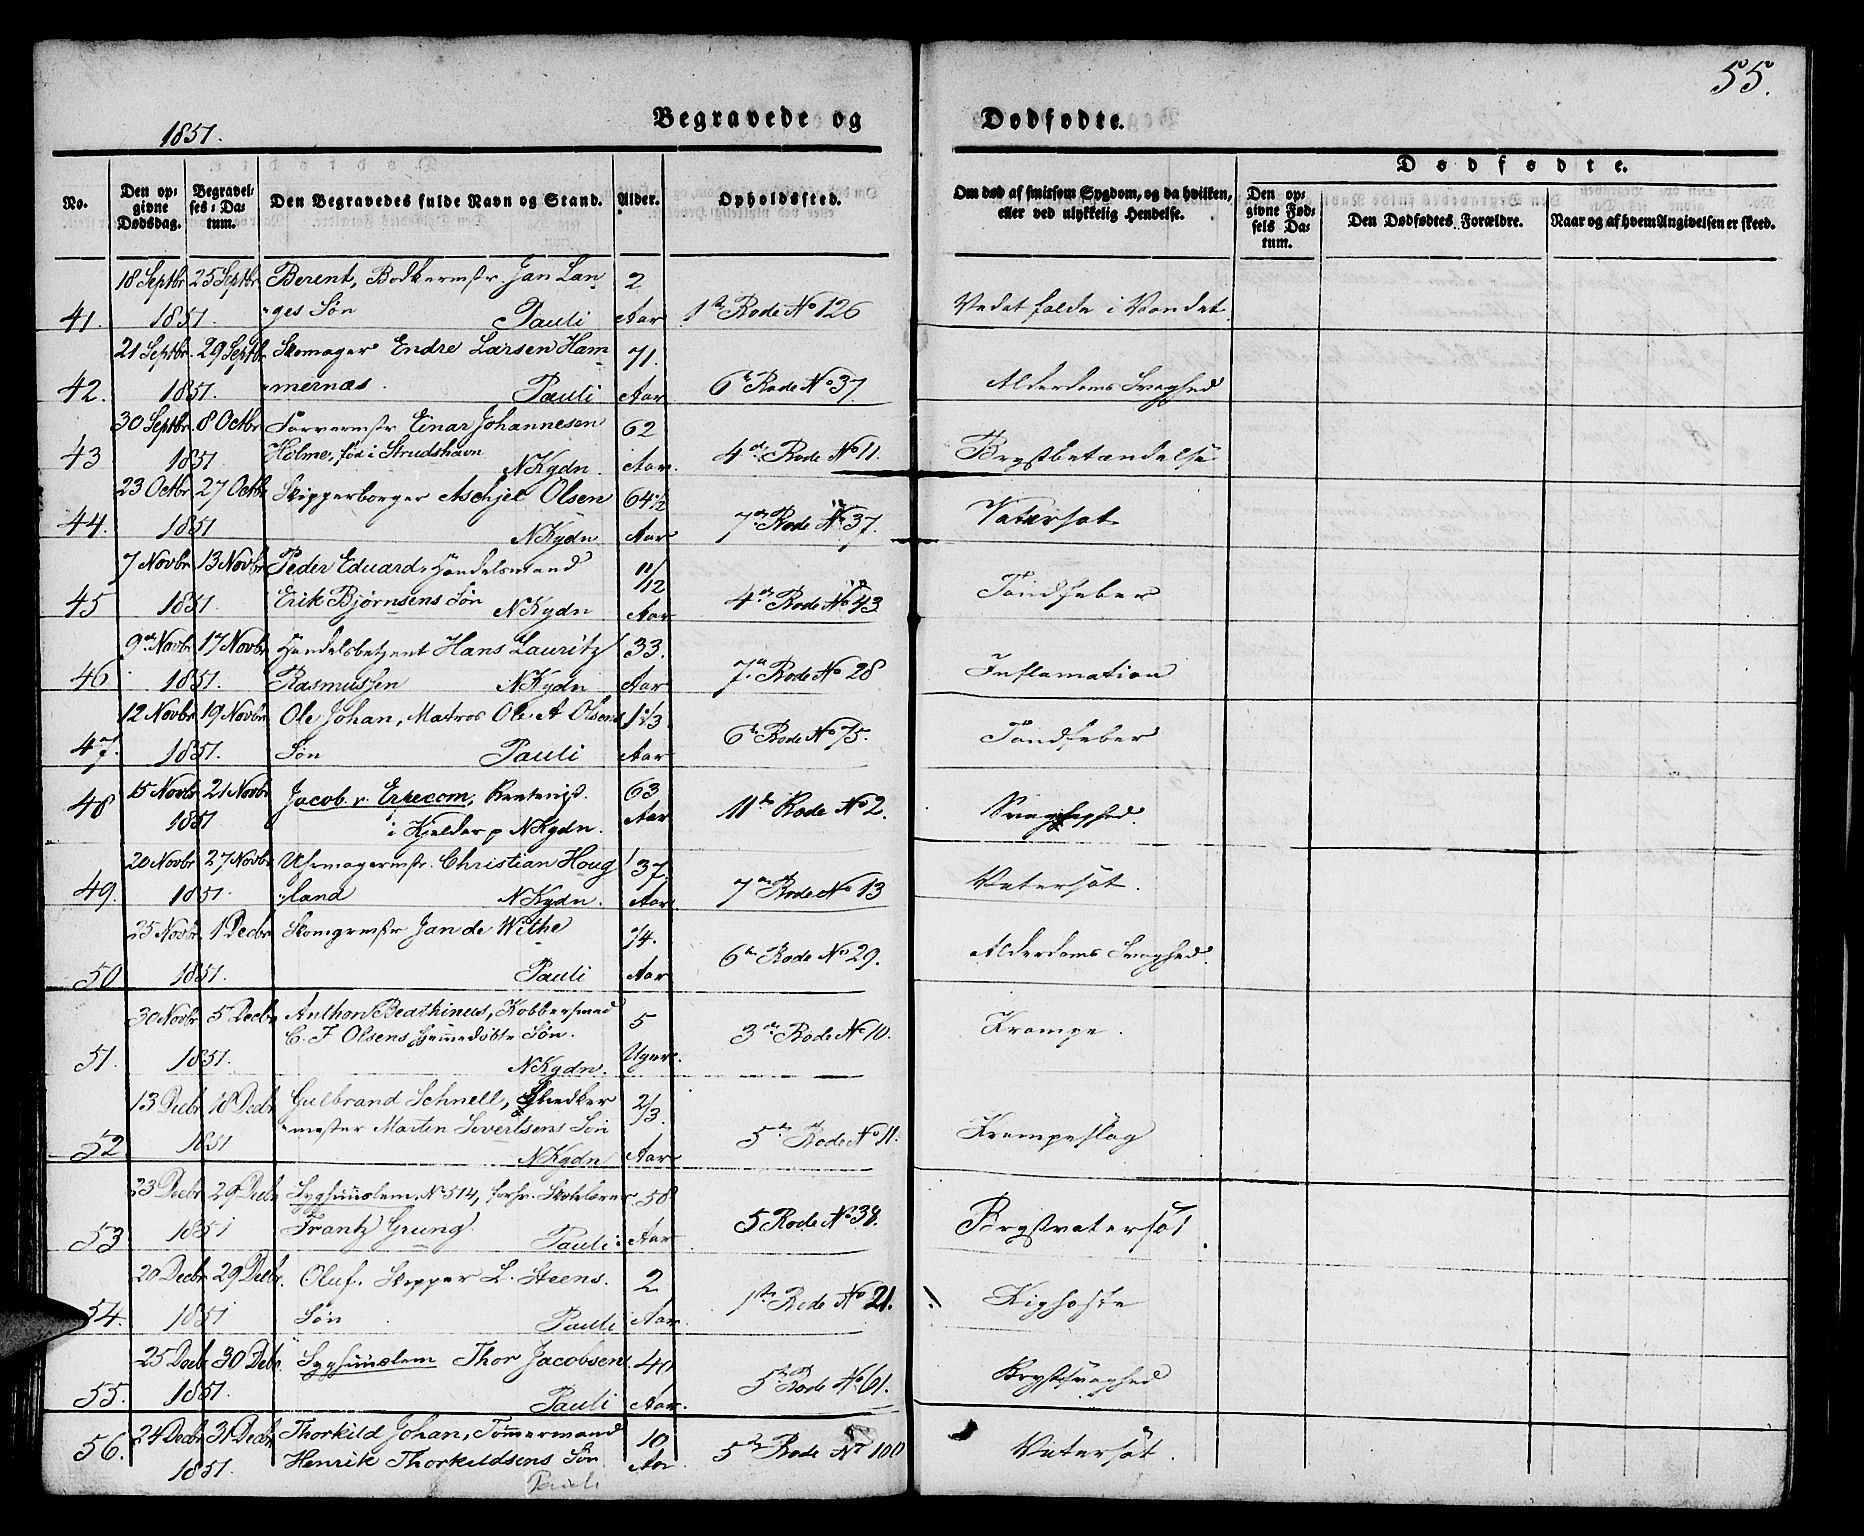 55.
1851.
Begravede og Dødfødte.
No.
Den opgivne Dødsdag.
Begravelses-Datum.
Den Begravedes fulde Navn og Stand.
Alder.
Opholdssted.
Om død af smitsom Sygdom, og da hvilken, eller ved ulykkelig Hendelse.
Dødfødte.
Den opgivne Fødsels Datum.
Den Dødfødtes Forældre.
Naar og af hvem Angivelsen er skeed.
18 Septbr 25 Septbr Berent, Bødkermstr. Jan Lan- 2
41. 1851. "ges Søn Pauli Aar 1ste Rode No 126 Vedat falde i Vandet.
21 Septbr. 29 Septbr. Skomager Endre Larsen Ham- 71.
42. 1851. "mernæs. Pauli Aar 6te Rode No 37. Alderdoms Svaghed
30 Septbr. 8 Octbr Farvermstr Einar Johannesen 62
43 1851. Holme, fød i Strudshavn NKgdn. Aar. 4de Rode No 11. Brystbetændelse
23 Octbr 27 Octbr Skipperborger Aschjel Olsen 64 1/2
44. 1851 NKgdn Aar 7de Rode No 37. Vatersot
7 Novbr 13 Novbr Peder Eduard, Handelsmand 11/12
45 1851. Erik Bjørnsens Søn NKgdn Aar 4de Rode No 43. Tandfeber
9de Novbr. 17 Novbr Handelsbetjent Hans Lauritz 33.
46 1851. Rasmussen NKgdn Aar 7de Rode No 28 Inflamation
12 Novbr 19 Novbr Ole Johan, Matros Ole A Olsens 1 1/3
47. 1851. Søn Pauli Aar 6te Rode No 75. Tandfeber
15 Novbr 21 Novbr Jacob v. Errecom, 63
48 1851 i Kjelder p NKgdn. Aar 11te Rode No 2. Svaghed.
20 Novbr 27 Novbr Uhrmagermstr. Christian Houg 37.
49. 1851. "land NKgdn. Aar. 7de Rode No 13 Vatersot.
25 Novbr. 1 Decbr Skomgrmstr Jan de Withe 74.
50 1851. Pauli Aar 6te Rode No 29. Alderdoms Svaghed.
30 Novbr 5 Decbr Anthon Beathinus, Kobbersmed 5
C. F Olsens hjemedøbte Søn.
51. 1851. NKgdn. Uger. 3de Rode No 10. Krampe.
13 Decbr 18 Decbr Gulbrand Schnell, Snedker 2/3.
"mester Martin Sivertsens Søn
52 1851 NKgdn Aar 5te Rode No 11. Krampeslag
23 Decbr 29 Decbr Syghuuslem, No 514, forhv. Skolelærer 58
53 1851 Frantz Grung. Pauli: Aar 5 Rode No 38. Brystvatersot.
20 Decbr 29 Decbr. Oluf. Skipper L. Steens. 2
54. 1851 Søn Pauli Aar. 1ste Rode No 21. Kighoste
25 Decbr 30 Decbr. Syghuuslem Thor Jacobsen 40
55. 1851. Pauli Aar. 5te Rode No 61. Brystsvaghed
24 Decbr 31 Decbr Thorkild Johan, Tømmermand 10
56. 1851. Henrik Thorkildsens Søn Aar 5te Rode No 100 Vatersot.
Pauli